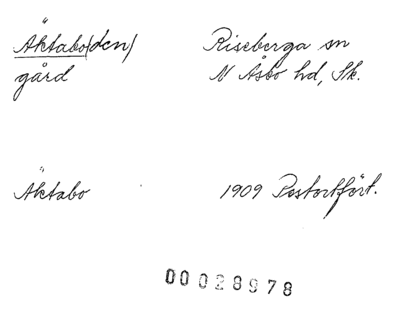 Äktabo(den) Riseberga sn
gård N Åsbo hd, Sk.
Äktabo 1909 Postortfört.
00028978